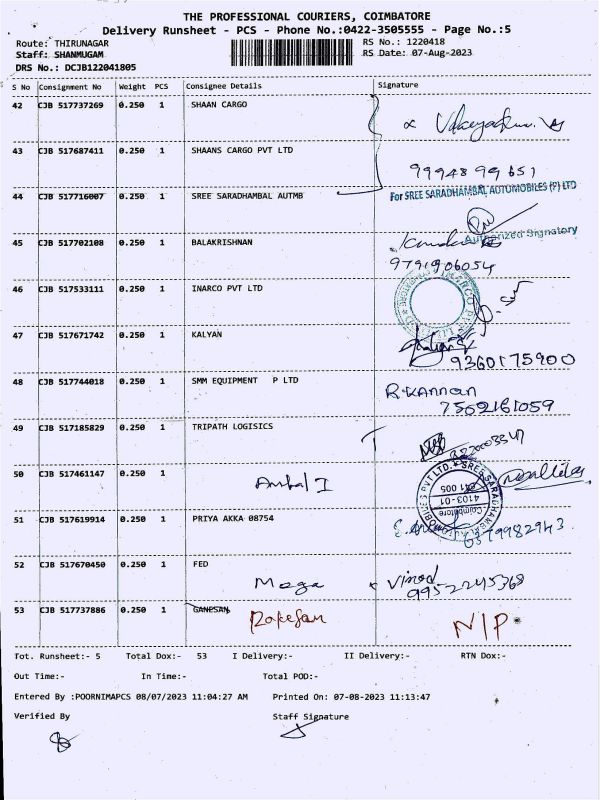 THE PROFESSIONAL COURIERS, COIMBATORE
Delivery Runsheet - PCS - Phone No.:0422-3505555 - Page No.:5
Route: THIRUNAGAR RS No.: 1220418
Staff: SHANMUGAM RS Date: 07-Aug-2023
DRS No.: DCJB122041805
S No Consignment No Weight PCS Consignee Details Signature
42 CJB 517737269 0.250 1 SHAAN CARGO
43 CJB 517687411 0.250 1 SHAANS CARGO PVT LTD
9994899651
44 CJB 517716007 0.250 1 SREE SARADHAMBAL AUTMB For SREE SARADHAMBAL AUTOMOBILES (P) LTD
Authorized Signatory
45 CJB 517702108 0.250 1 BALAKRISHNAN
9791906054
46 CJB 517533111 0.250 1 INARCO PVT LTD
47 CJB 517671742 0.250 1 KALYAN
9360175900
48 CJB 517744018 0.250 1 SMM EQUIPMENT P LTD R.KANNAN
7502161059
49 CJB 517185829 0.250 1 TRIPATH LOGISICS
50 CJB 517461147 0.250 1
51 CJB 517619914 0.250 1 PRIYA AKKA 08754
6379982943
52 CJB 517670450 0.250 1 FED
Mega Vinod
9952245368
53 CJB 517737886 0.250 1 GANESAN
N/P
Tot. Runsheet:- 5 Total Dox:- 53 I Delivery:- II Delivery:- RTN Dox:-
Out Time:- In Time:- Total POD:-
Entered By :POORNIMAPCS 08/07/2023 11:04:27 AM Printed On: 07-08-2023 11:13:47
Verified By Staff Signature